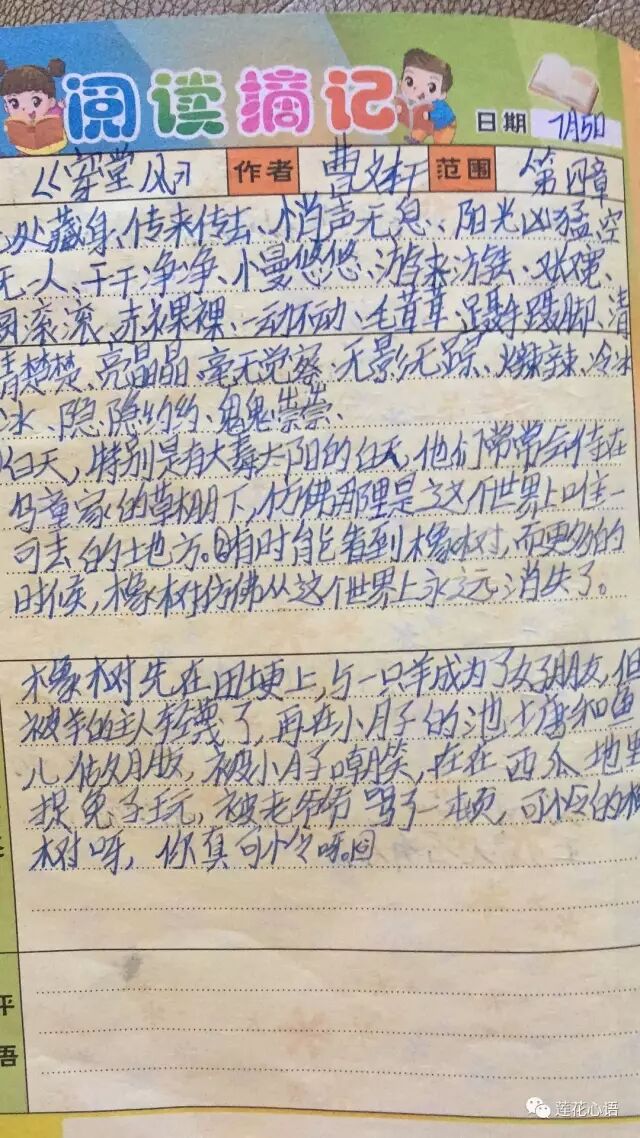 阅读摘记
日期 7月5日
《穿堂风》 作者 曹文轩 范围 第四章
处藏身、传来传去、悄声无息、阳光凶猛、空
无一人、干干净净、小曼悠悠、游来游去、
圆滚滚、赤裸裸、一动不动、毛茸茸、蹑手蹑脚、清
清楚楚、亮晶晶、毫无觉察、无影无踪、火辣辣、冷冰
冰、隐隐约约、鬼鬼祟祟、
白天，特别是有大毒太阳的白天，他们常常会待在
乌童家的草棚下，仿佛那里是这个世界上唯一
可去的土地方。有时能看到橡树，而更多的
时候，橡树仿佛从这个世界上永远消失了。
橡树先在田埂上，与一只羊成为了好朋友，但
被羊的主人轻蔑了，再在小月子的池塘和鱼
儿做朋友，被小月子嘲笑，在在西瓜地里
捉兔子玩，被老爷爷骂了一顿，可怜的橡
树呀，你真可怜呀。
评
语
莲花心语